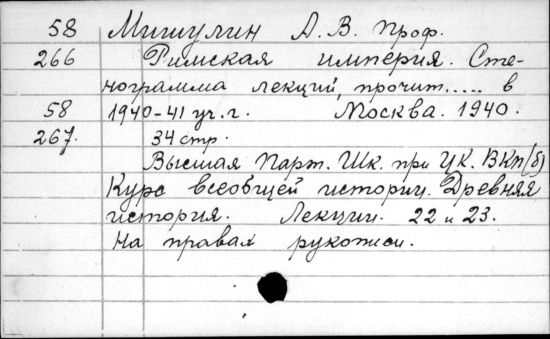 58 Мишулин А. В. проф.
266 Римская империя. Сте-
нограмма лекций, прочит..... в
58 1940-41 уч. г. Москва. 1940.
267. 34 стр.
Высшая Парт. Шк. при ЦК. ВКП(б)
Курс всеобщей истории. Древняя
история. Лекции. 22 и 23.
На правах рукописи.